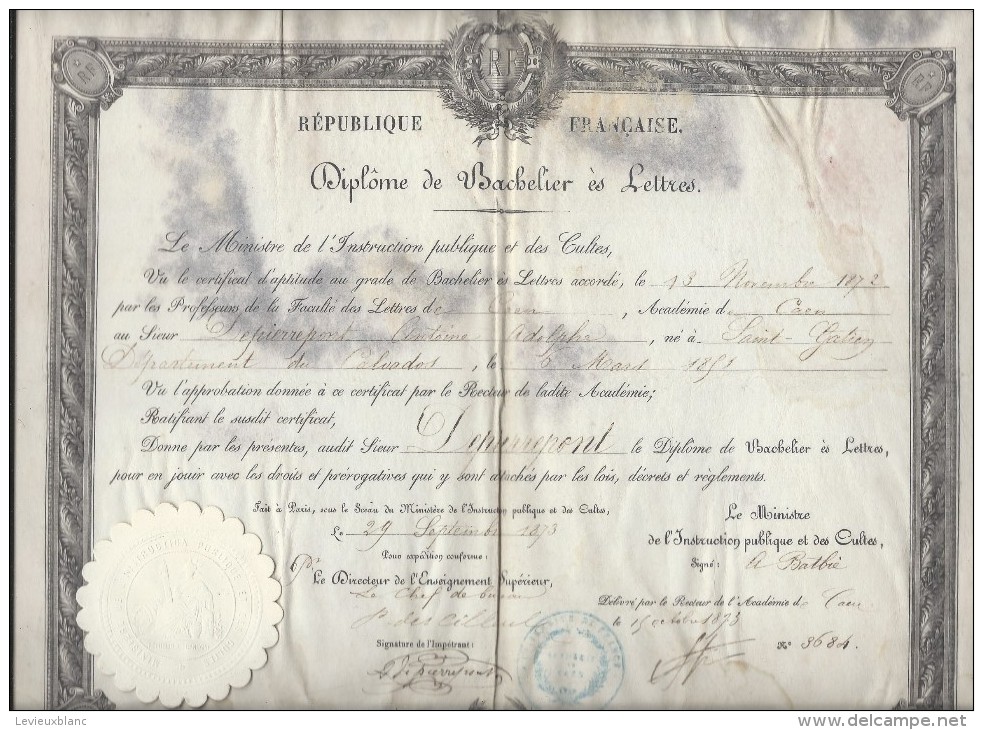 RF
RÉPUBLIQUE FRANÇAISE.
Diplôme de Bachelier ès Lettres.
Le Ministre de l'Instruction publique et des Cultes,
Vu le certificat d'aptitude au grade de Bachelier ès Lettres accordé, le 13 Novembre 1872
par les Professeurs de la Faculté des Lettres de Caen, Académie de Caen
au Sieur Depierrepont Antoine Adolphe, né à Saint-Gatien
Département du Calvados, le Mars
Vu l'approbation donnée à ce certificat par le Recteur de ladite Académie;
Ratifiant le susdit certificat,
Donne par les présentes, audit Sieur Depierrepont le Diplôme de Bachelier ès Lettres,
pour en jouir avec les droits et prérogatives qui y sont attachés par les lois, décrets et règlements.
Fait à Paris, sous le Sceau du Ministère de l'Instruction publique et des Cultes,
Le 29 Septembre 1873
Pour expédition conforme:
Le Directeur de l'Enseignement Supérieur,
Le Chef de bureau
Signature de l'Impétrant:
Depierrepont
Le Ministre
de l'Instruction publique et des Cultes,
Signé: A Batbie
Délivré par le Recteur de l'Académie de Caen
le 15 octobre 1873
N° 3684.
INSTRUCTION PUBLIQUE ET
Levieuxblanc
http://www.delcampe.net